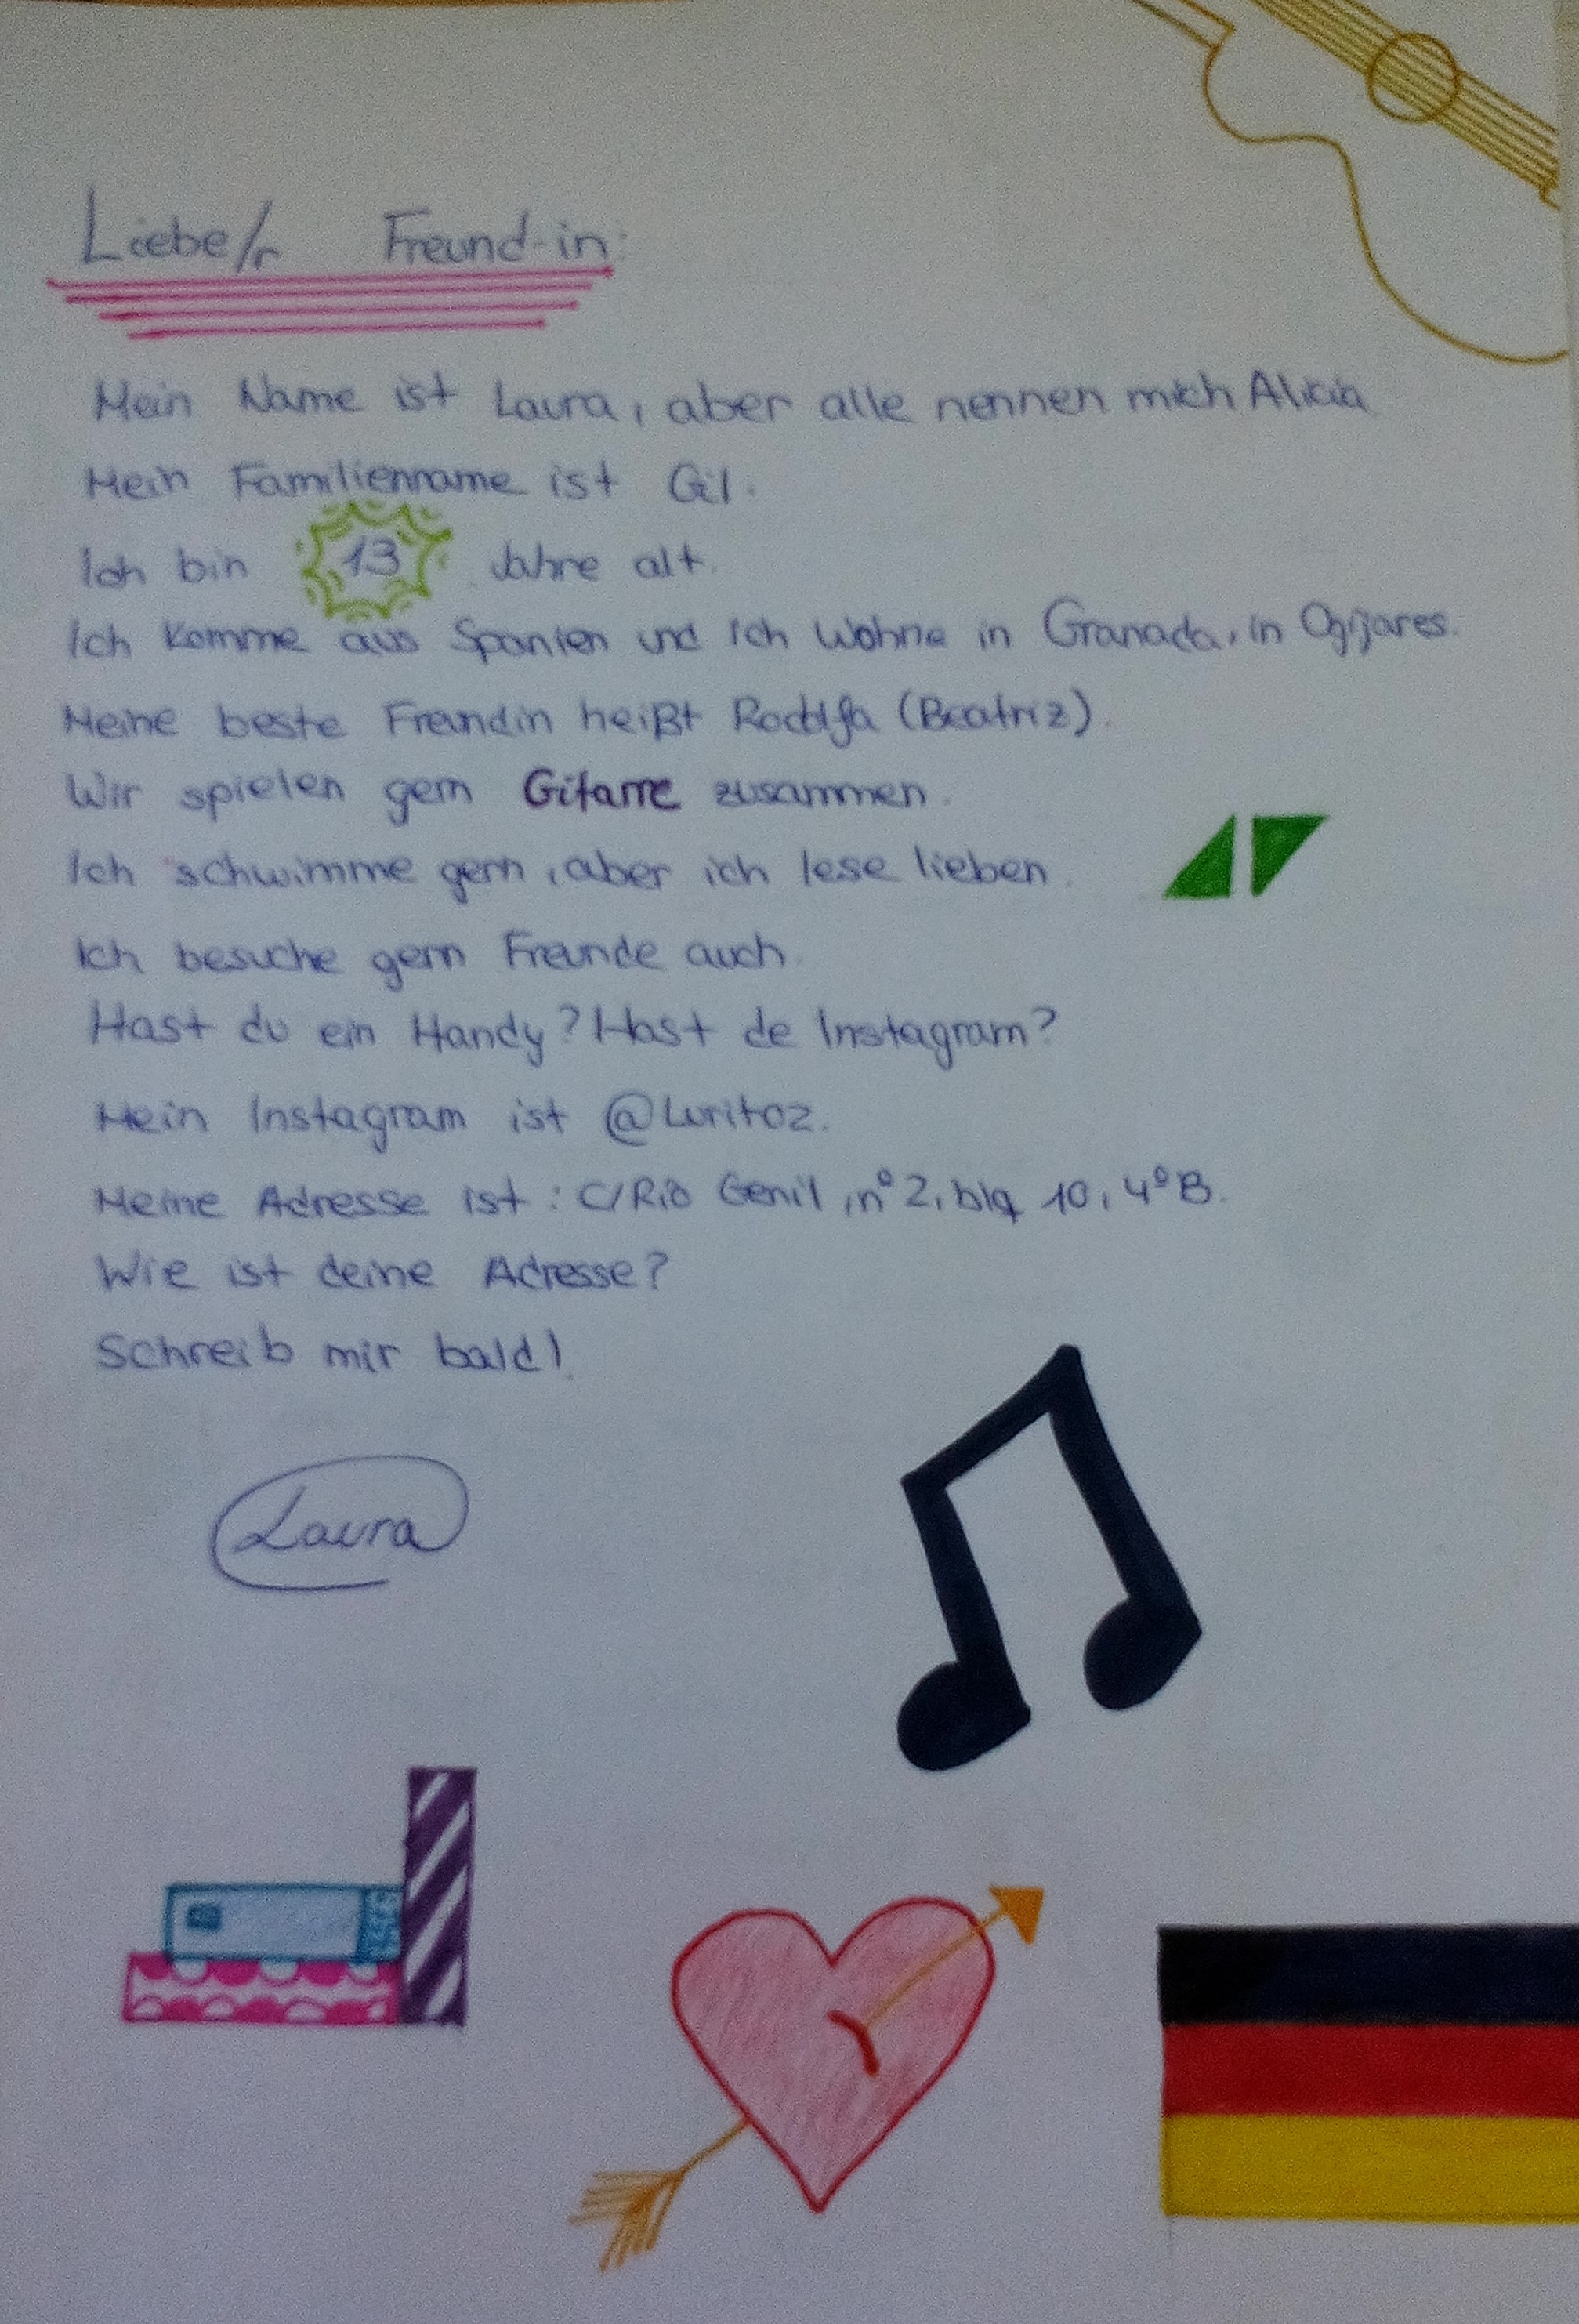 Liebe/r Freund-in:
Mein Name ist Laura, aber alle nennen mich Alicia
Mein Familienname ist Gil.
Ich bin 13 Jahre alt.
Ich komme aus Spanien und ich wohne in Granada, in Ogíjares.
Meine beste Freundin heißt (Beatriz).
Wir spielen gern Gitarre zusammen.
Ich schwimme gern, aber ich lese lieben.
Ich besuche gern Freunde auch.
Hast du ein Handy? Hast de Instagram?
Mein Instagram ist @Luritoz.
Meine Adresse ist: C/Río Genil, nº 2, blq 10, 4º B.
Wie ist deine Adresse?
Schreib mir bald!
Laura